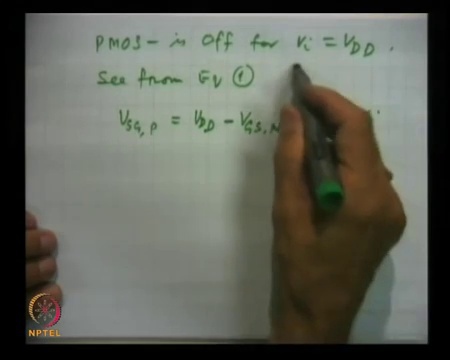 PMOS - is Off for Vi = VDD.
See from Eq ①
VSG,P = VDD - VGS,N
NPTEL